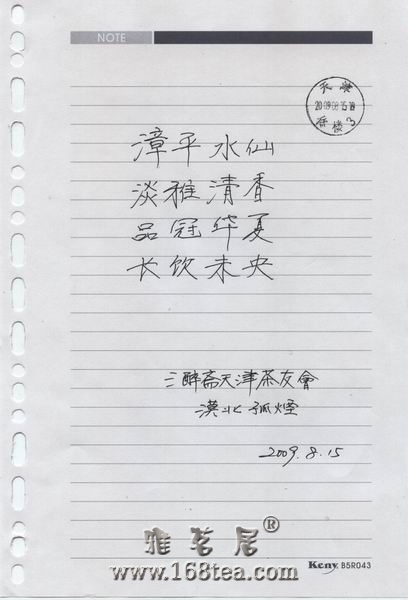 NOTE
2009.08.15.18
3
漳平水仙
淡雅清香
品冠华夏
长饮未央
三醉斋天津茶友會
漠北孤烟
2009.8.15
雅茗居®
www.168tea.com
Keny. B5R043